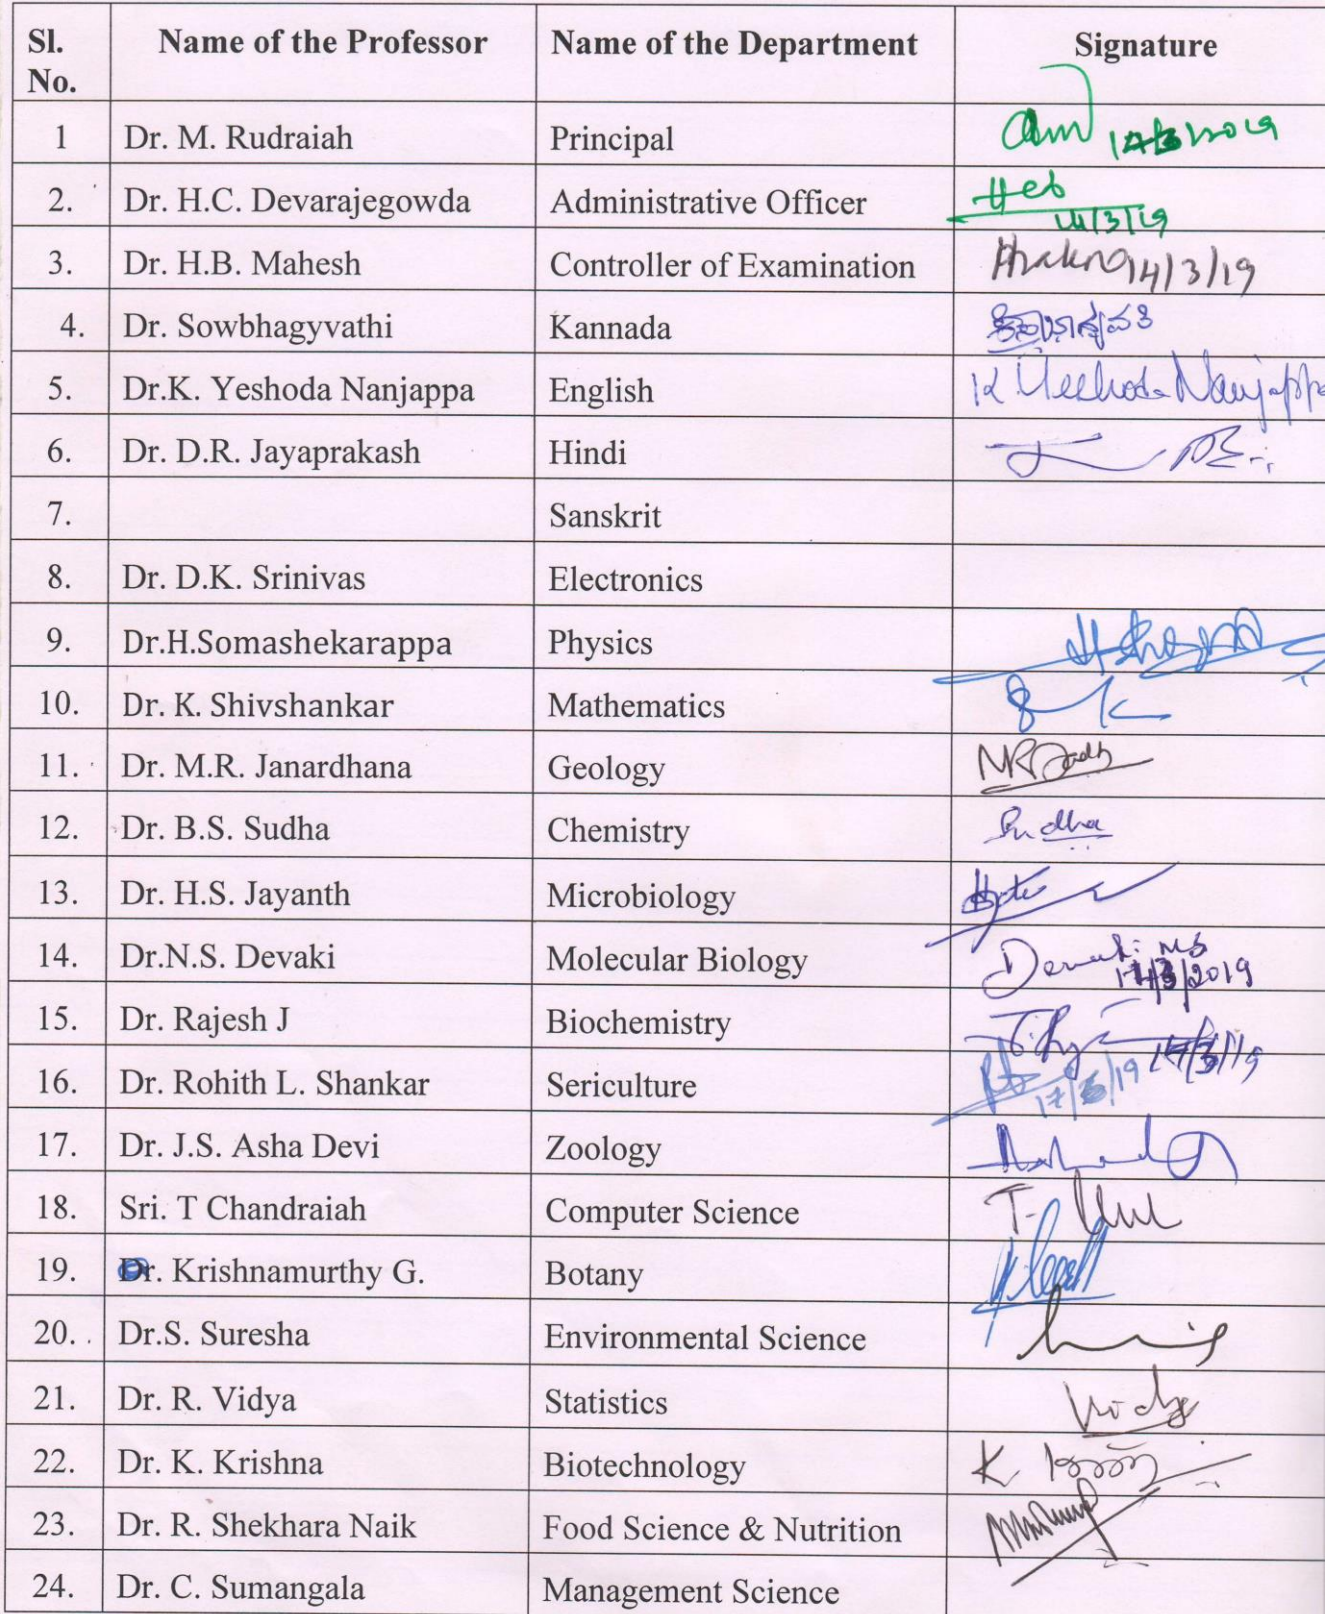 Sl. No. Name of the Professor Name of the Department Signature
1 Dr. M. Rudraiah Principal
2. Dr. H.C. Devarajegowda Administrative Officer 14/3/19
3. Dr. H.B. Mahesh Controller of Examination 14/3/19
4. Dr. Sowbhagyvathi Kannada
5. Dr.K. Yeshoda Nanjappa English K Yeshoda Nanjappa
6. Dr. D.R. Jayaprakash Hindi
7. Sanskrit
8. Dr. D.K. Srinivas Electronics
9. Dr.H.Somashekarappa Physics
10. Dr. K. Shivshankar Mathematics
11. Dr. M.R. Janardhana Geology
12. Dr. B.S. Sudha Chemistry Sudha
13. Dr. H.S. Jayanth Microbiology
14. Dr.N.S. Devaki Molecular Biology Devaki NS 14/3/2019
15. Dr. Rajesh J Biochemistry 14/3/19
16. Dr. Rohith L. Shankar Sericulture
17. Dr. J.S. Asha Devi Zoology
18. Sri. T Chandraiah Computer Science
19. Dr. Krishnamurthy G. Botany
20. Dr.S. Suresha Environmental Science
21. Dr. R. Vidya Statistics
22. Dr. K. Krishna Biotechnology
23. Dr. R. Shekhara Naik Food Science & Nutrition
24. Dr. C. Sumangala Management Science